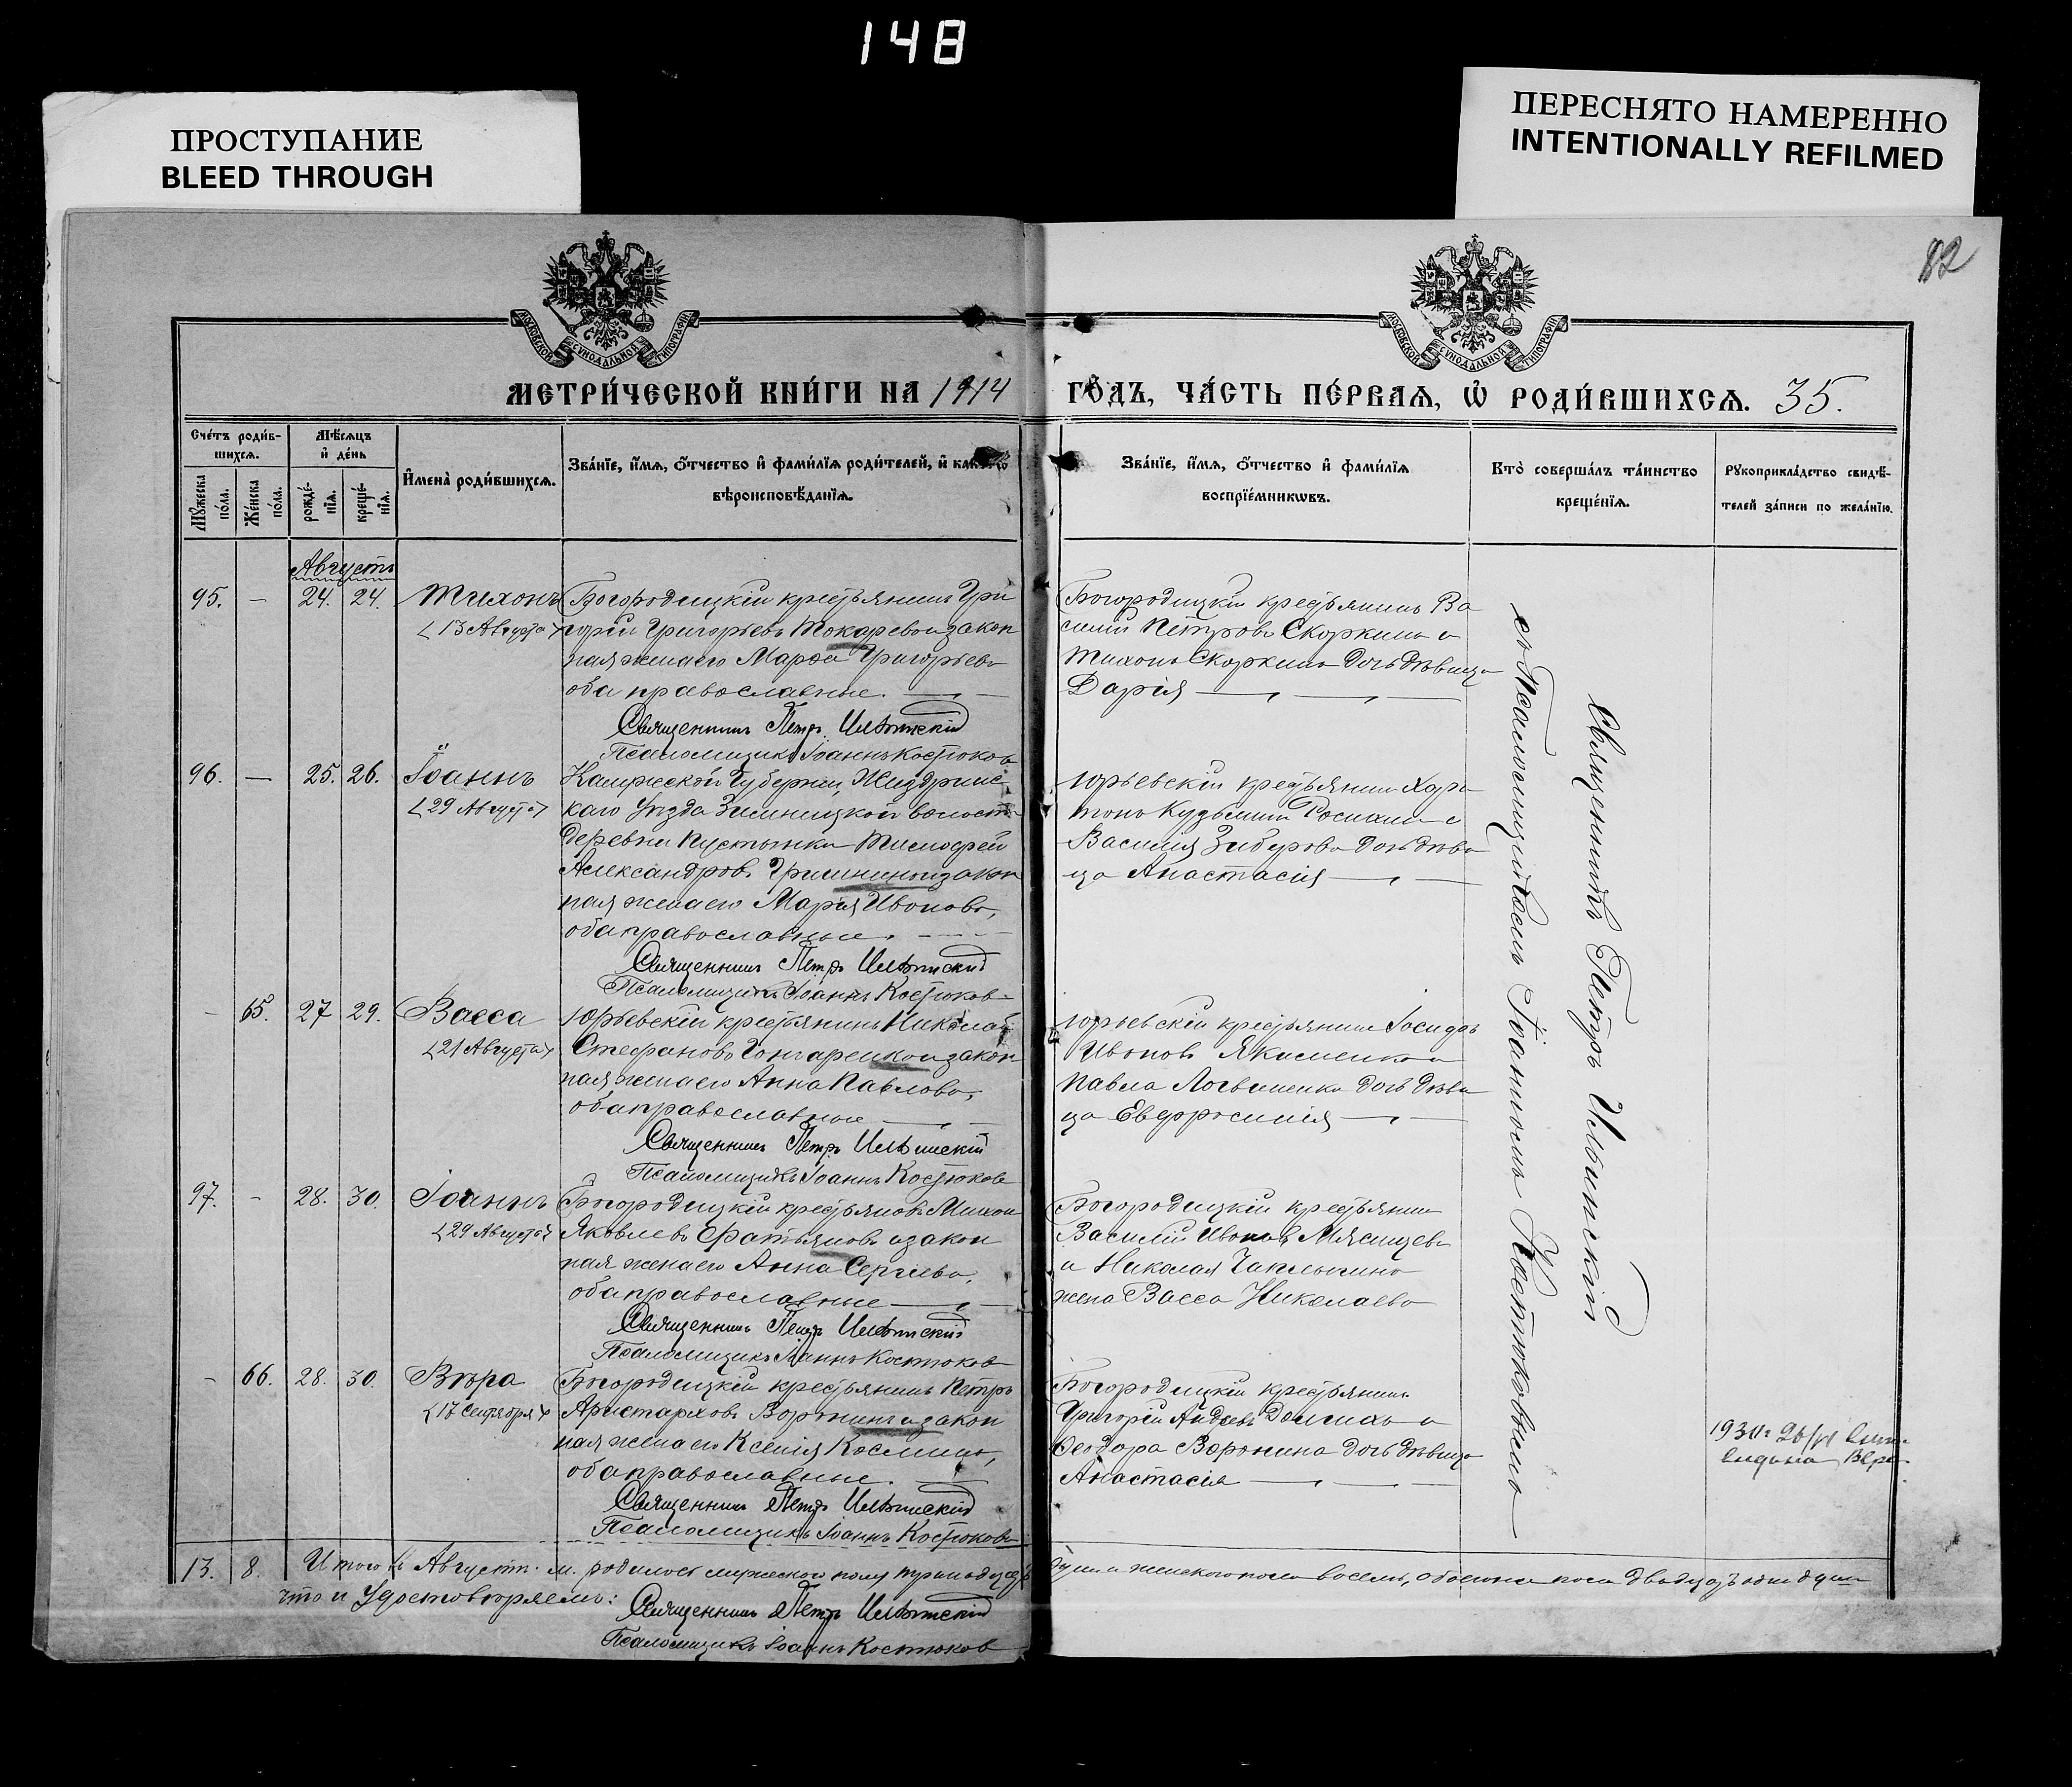 148
ПРОСТУПАНИЕ
BLEED THROUGH
ПЕРЕСНЯТО НАМЕРЕННО
INTENTIONALLY REFILMED
82
МОСКОВСКОЙ СУНОДАЛЬНОЙ ТИПОГРАФІИ
МОСКОВСКОЙ СУНОДАЛЬНОЙ ТИПОГРАФІИ
МЕТРИ́ЧЕСКОЙ КНИ́ГИ НА 1914 ГО́ДЪ, ЧА́СТЬ ПЕ́РВАЯ, Ѽ РОДИ́ВШИХСЯ. 35.
Сче́тъ роди́в-
шихся.
Мѣ́сяцъ
и҆ де́нь
Мꙋ́жеска по́ла.
Же́нска по́ла.
рожде́-нїя.
креще́-нїя.
И҆мена̀ роди́вшихся.
Зва́нїе, и҆́мя, ѻ҆́тчество и҆ фами́лїя роди́телей, и҆
вѣроисповѣ́данїя.
Зва́нїе, и҆́мя, ѻ҆́тчество и҆ фами́лїя
воспрїе́мниковъ.
Кто̀ соверша́лъ та́инство
креще́нїя.
Рꙋкоприкла́дство свидѣ́-
телей за́писи по жела́нїю.
Августъ
95. — 24. 24. Тихонъ Богородицкій крестьянинъ Гри
<13 Августа> горій Григорьевъ Токаревъ и закон
ная жена его Марфа Григорьева
оба православные. —
Священникъ Петръ Ильинскій
Псаломщикъ Іоаннъ Костюковъ
Богородицкій крестьянинъ Ва
силій Петровъ Скоркинъ и
Тихона Скоркина дочь дѣвица
Дарія —
96. — 25. 26. Іоаннъ Калужской Губерніи, Жиздринс
<29 Августа> каго уѣзда Зимницкой волости
деревни Пустынки Тимофей
Александровъ Гришининъ и закон
ная жена его Марія Иванова,
оба православные. —
Священникъ Петръ Ильинскій
Псаломщикъ Іоаннъ Костюковъ
Юрьевскій крестьянинъ Хари
тонъ Кузьминъ и
Василія Зибарова дочь дѣви
ца Анастасія —
— 65. 27 29. Васса Юрьевскій крестьянинъ Николай
<21 Августа> Стефановъ Гончаренко и закон
ная жена его Анна Павлова,
оба православные —
Священникъ Петръ Ильинскій
Псаломщикъ Іоаннъ Костюковъ
Юрьевскій крестьянинъ Іосифъ
Ивановъ Якименко и
Павла Логвиненко дочь дѣви
ца Евфросинія —
97. — 28. 30. Іоаннъ Богородицкій крестьянинъ
<29 Августа> Яковлевъ Фатьяновъ и закон
ная жена его Анна Сергѣева,
оба православные —
Священникъ Петръ Ильинскій
Псаломщикъ Іоаннъ Костюковъ
Богородицкій крестьянинъ
Василій Ивановъ Мясищевъ
и Николая Чаплыгина
жена Васса Николаева
— 66. 28. 30. Вѣра Богородицкій крестьянинъ Петръ
<17 Сентября> Аристарховъ Воронинъ и закон
ная жена его Ксенія Космина,
оба православные. —
Священникъ Петръ Ильинскій
Псаломщикъ Іоаннъ Костюковъ
Богородицкій крестьянинъ
Григорій Андреевъ и
Феодора Воронина дочь дѣвица
Анастасія —
Священникъ Петръ Ильинскій
съ Псаломщикомъ Іоанномъ Костюковымъ
1930 г
выдана
13. 8. Итого въ Августѣ м. родилось мужескаго полу тринадцать душ и женскаго пола восемь, обоего пола двадцать одна душа
что и удостовѣряемъ:
Священникъ Петръ Ильинскій
Псаломщикъ Іоаннъ Костюковъ